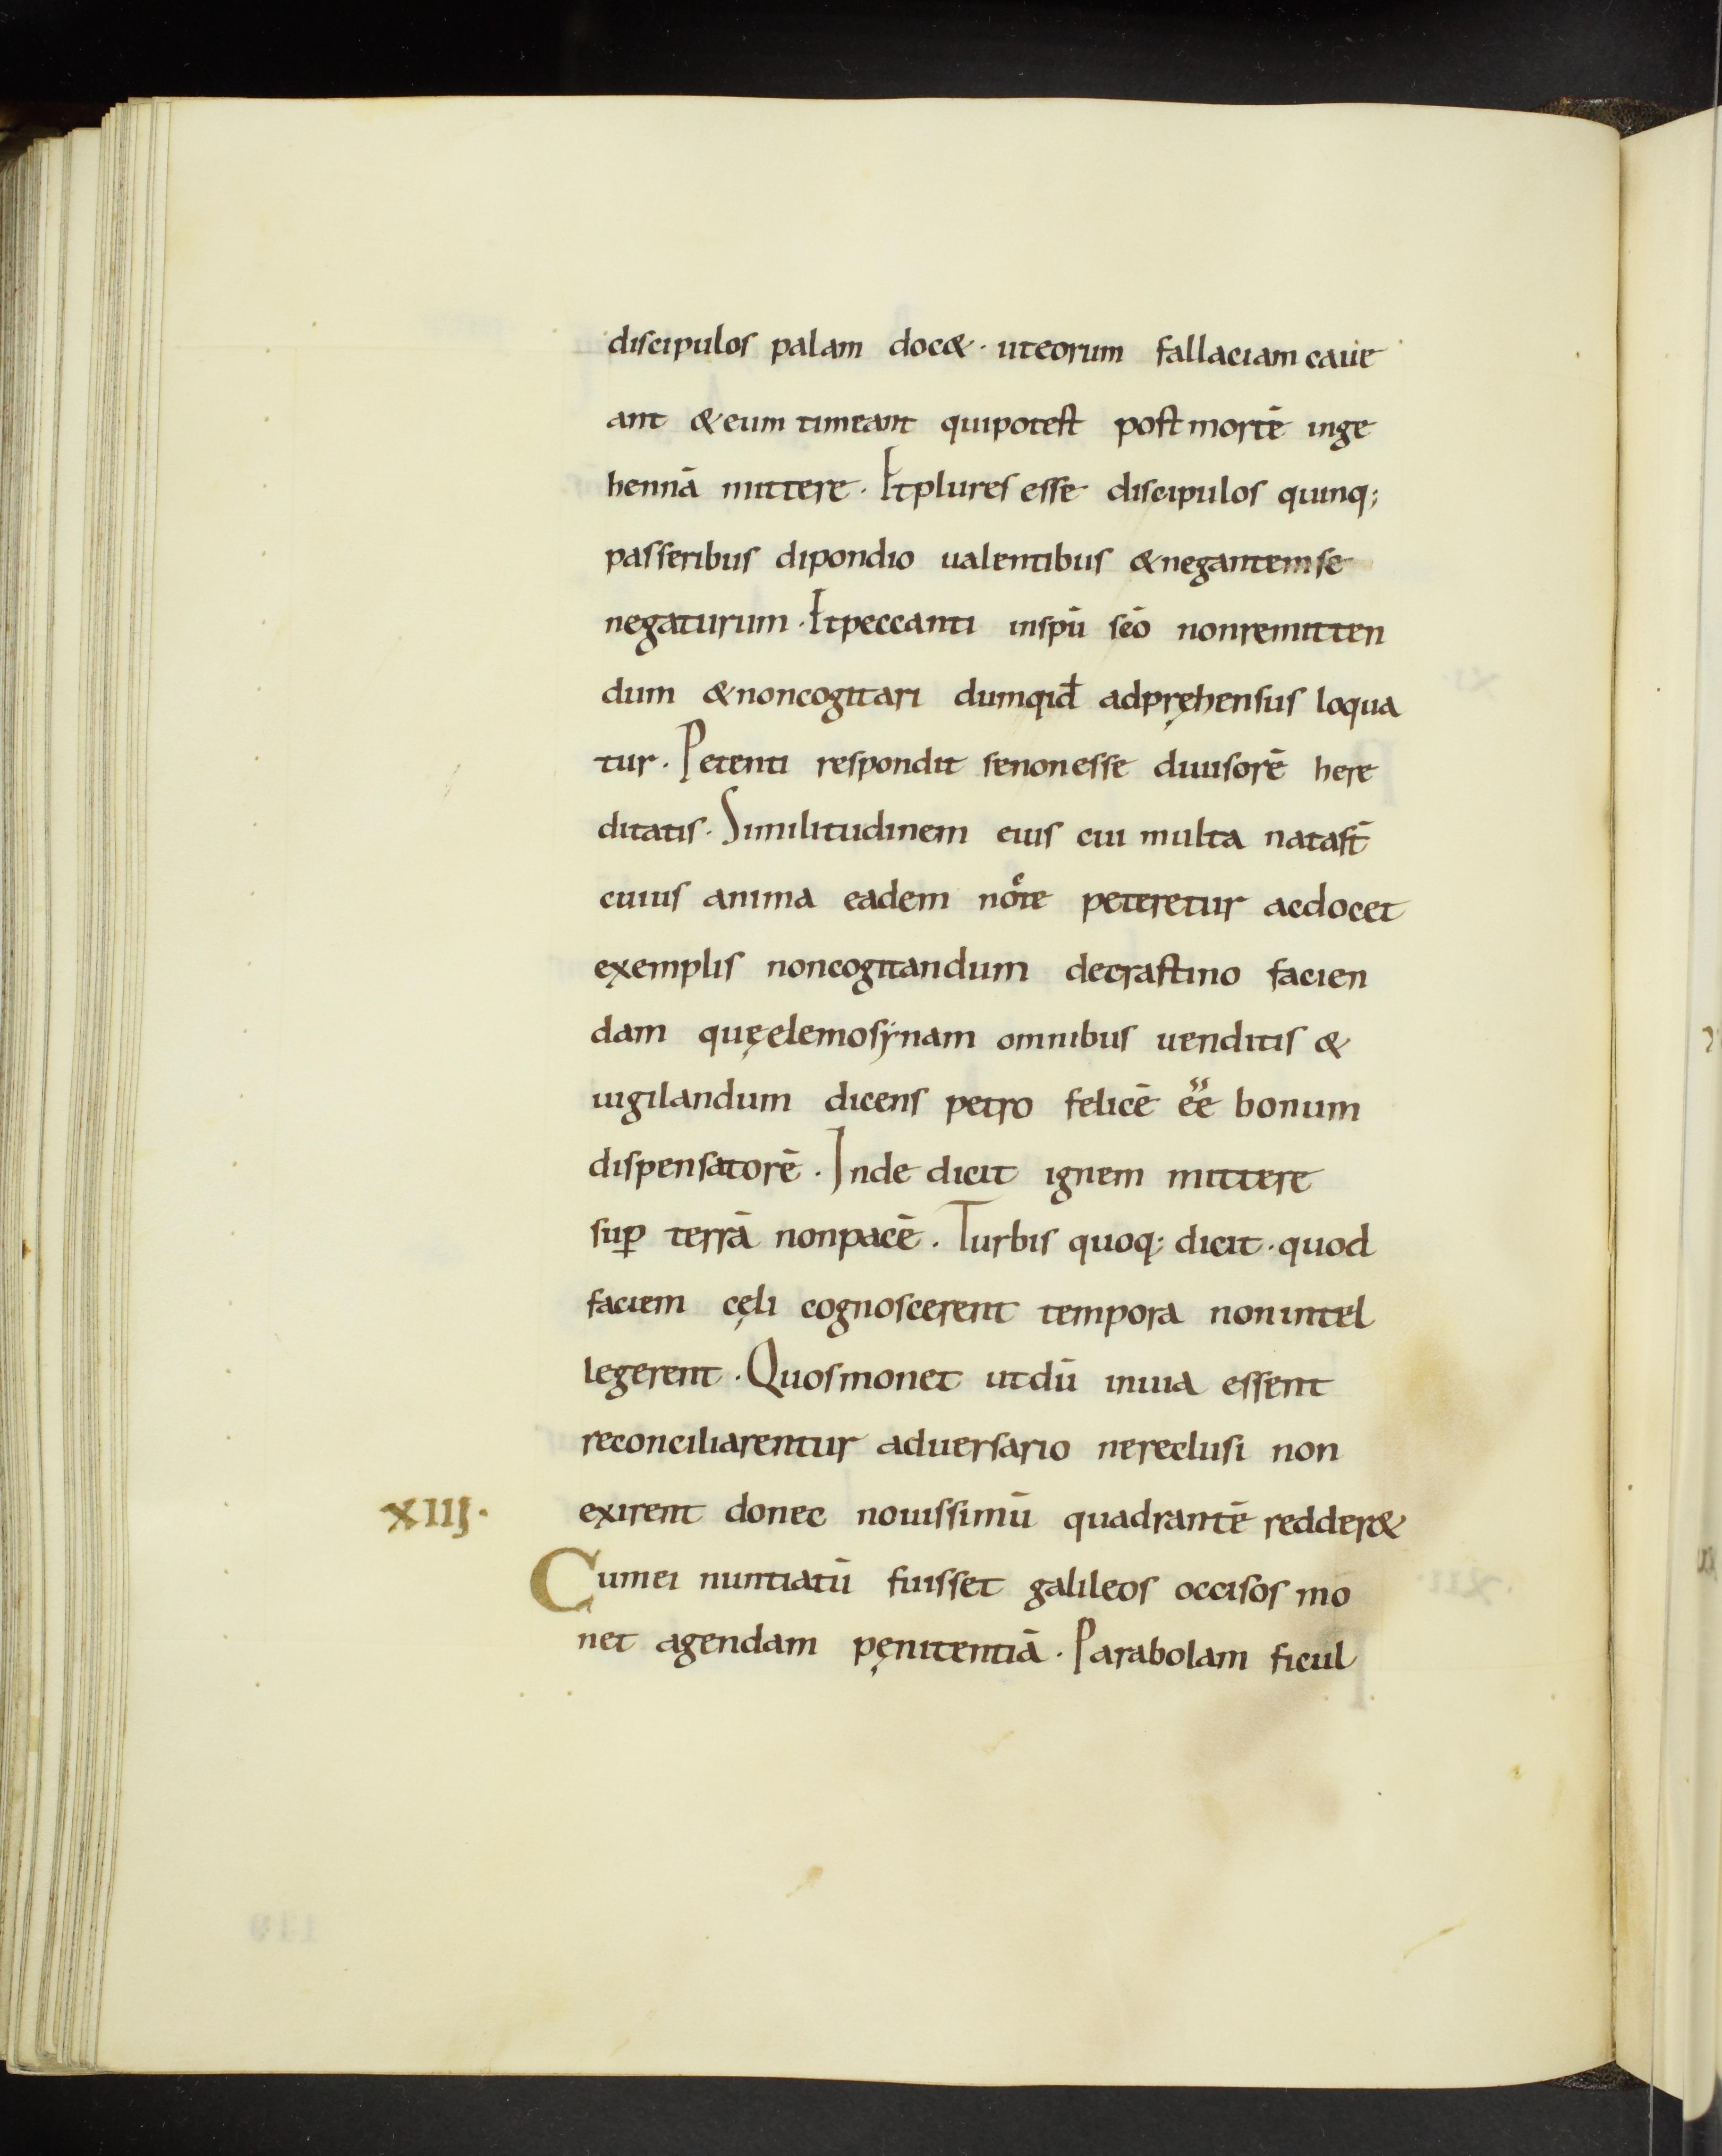 discipulos palam doc& · uteorum fallaciam caue
ant & eum timeant quipotest post mortē inge
hennā mittere · Et plures esse discipulos quinq;
passeribus dipondio ualentibus & negantem se
negaturum · Et peccanti inspū scō nonremitten
dum & noncogitari dumqid adpręhensus loqua
tur · Petenti respondit senonesse diuisorē here
ditatis · Similitudinem eius cui multa natast̄
cuius anima eadem nocte peteretur acdocet
exemplis noncogitandum decrastino facien
dam quęelemosẏnam omnibus uenditis &
uigilandum dicens petro felicē eē bonum
dispensatorē · Inde dicit ignem mittere
suꝑ terrā nonpacē · Turbis quoq; dicit · quod
faciem cęli cognoscerent tempora nonintel
legerent · Quosmonet utdū inuia essent
reconciliarentur aduersario nereclusi non
XIIJ · exirent donec nouissimū quadrantē redder&
Cumei nuntiatū fuisset galileos occisos mo
net agendam pęnitentiā · Parabolam ficul